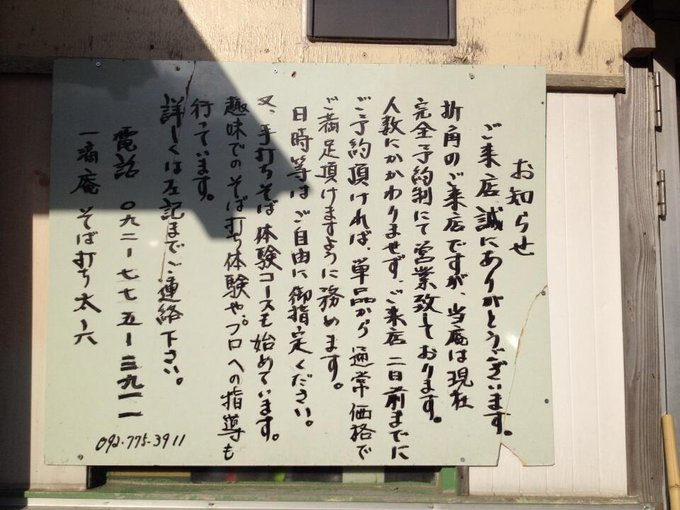 お知らせ
ご来店、誠にありがとうございます。
折角のご来店ですが、当庵は現在
完全予約制にて営業致しております。
人数にかかわりませず、ご来店二日前までに
ご予約頂ければ、単品から通常価格で
ご満足頂けますように務めます。
日時等はご自由に御指定ください。
又、手打ちそば体験コースも始めています。
趣味でのそば打ち体験や、プロへの指導も
行っています。
詳しくは左記までご連絡下さい。
電話 〇九二ー七七五ー三九一一
一滴庵 そば打ち太六
092-775-3911